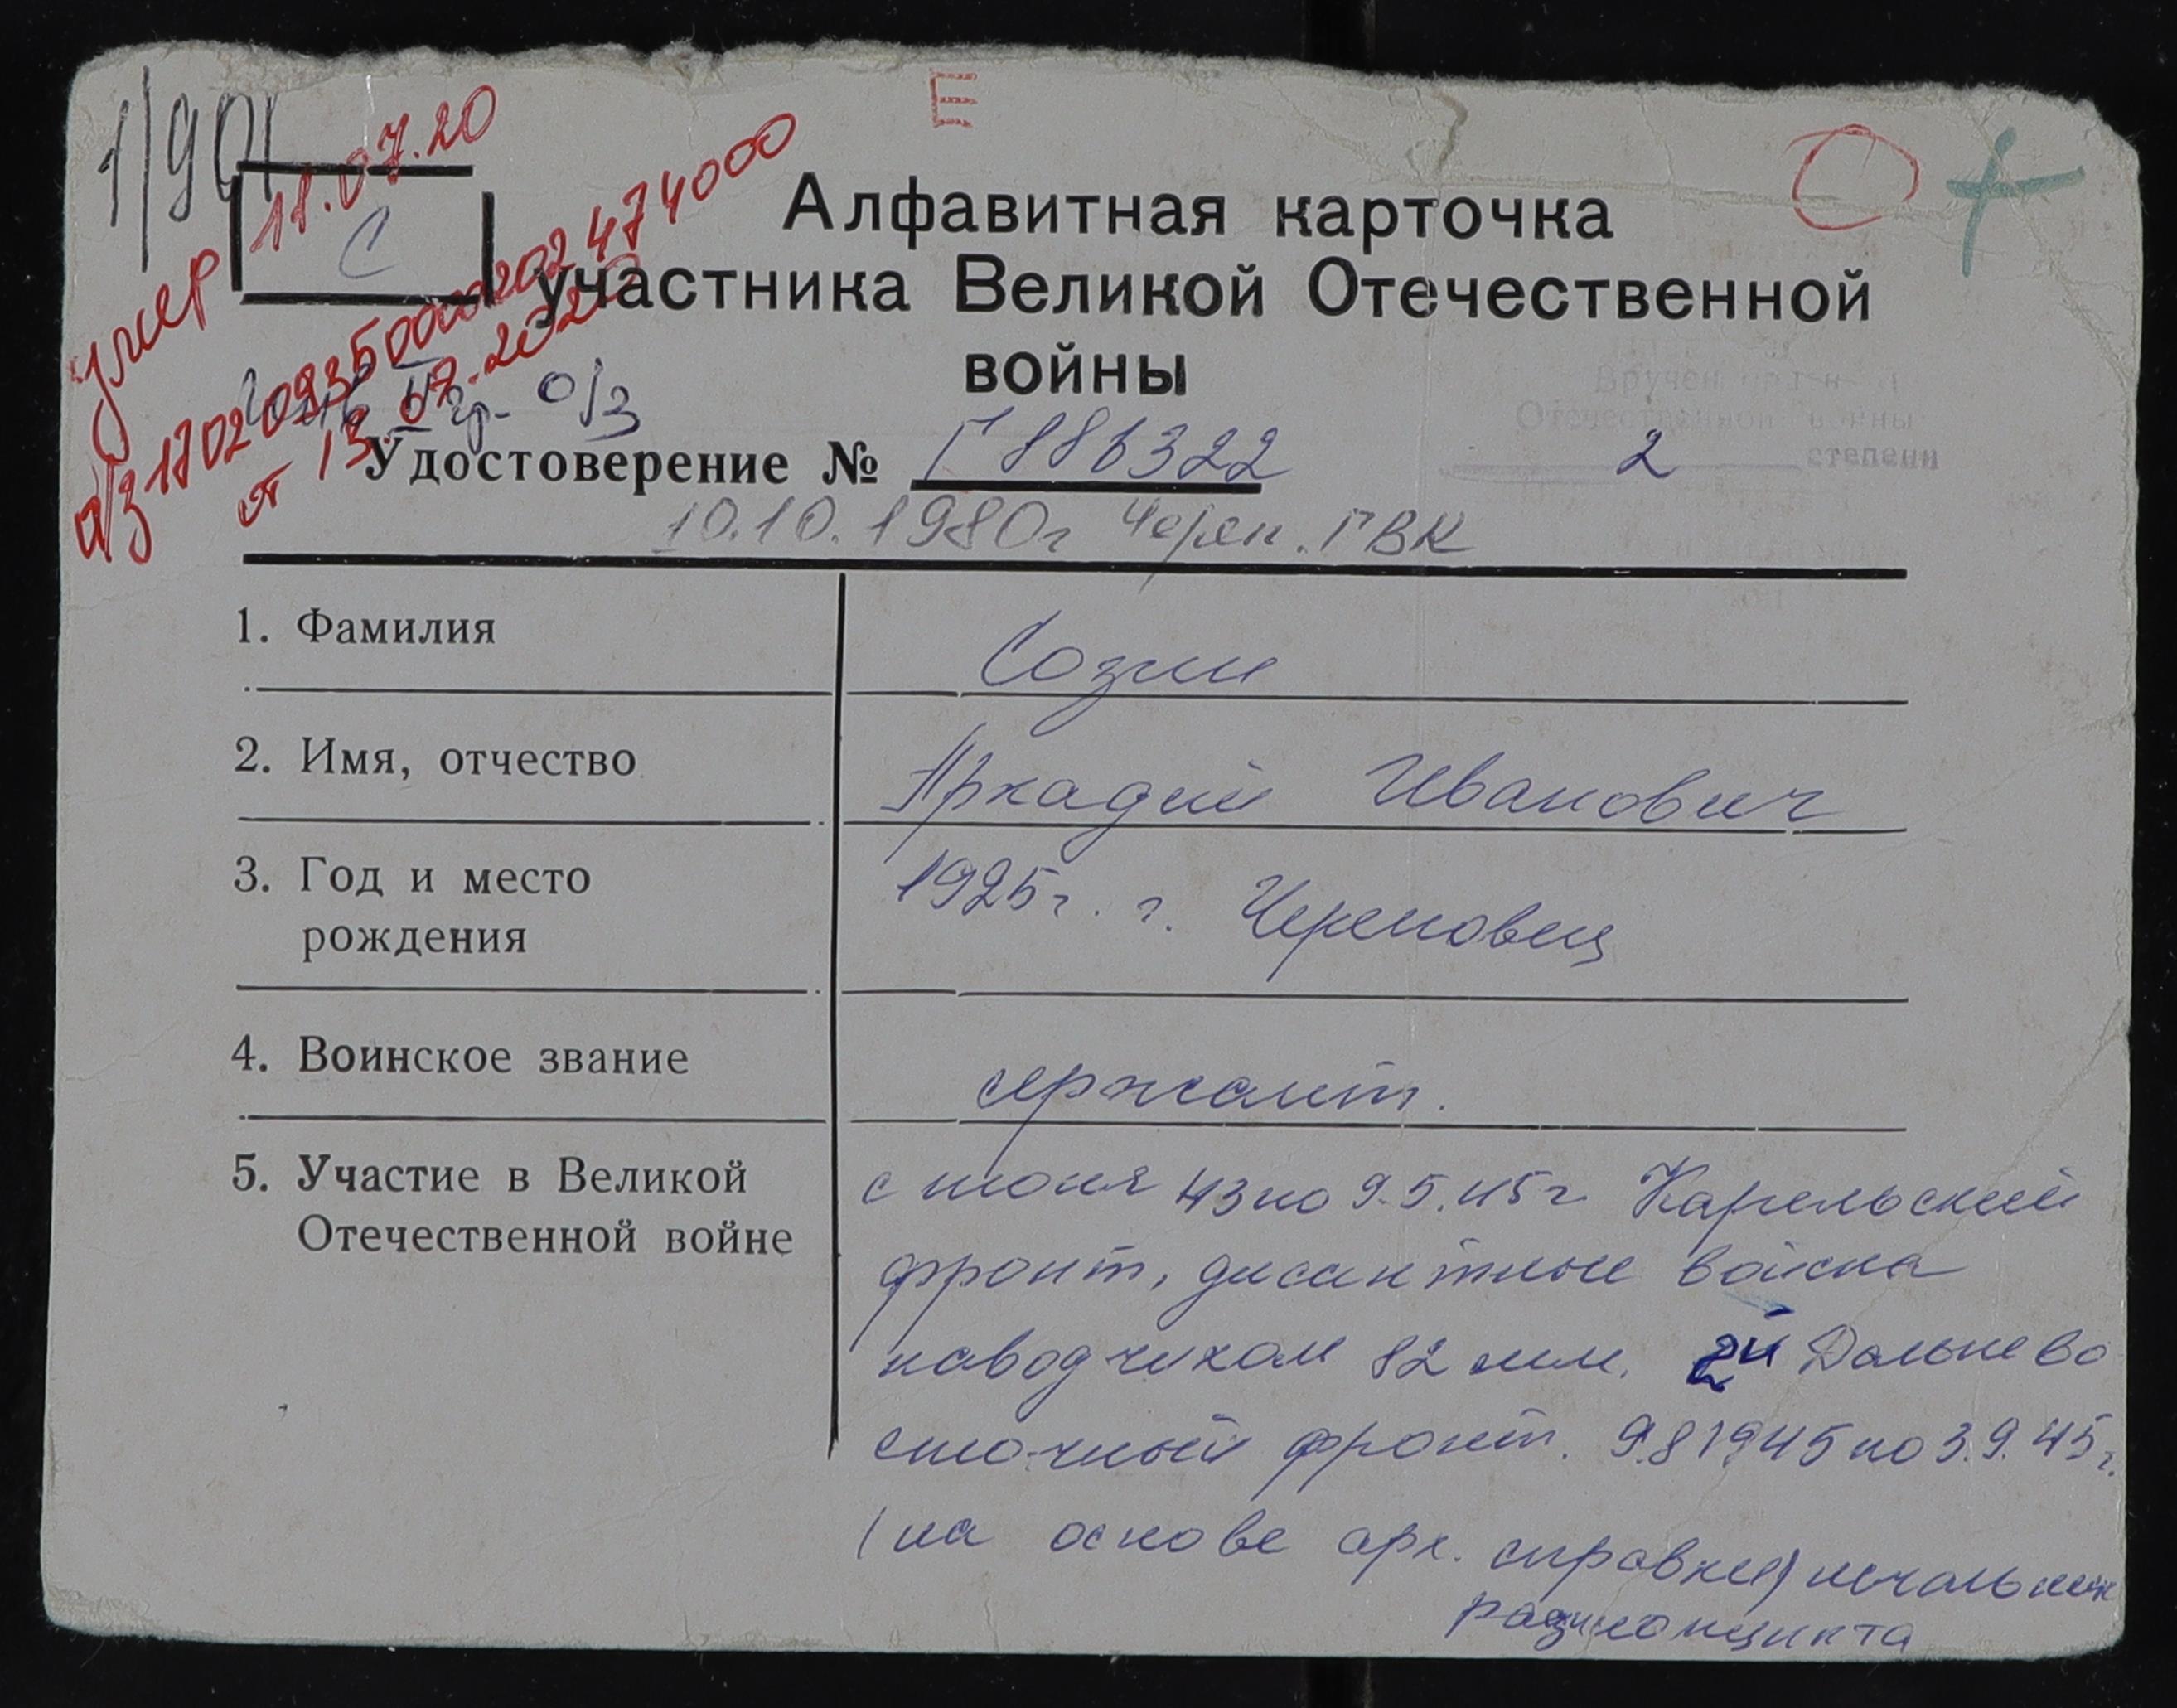 Е
1/901
умер 11.07.20
С
а/з 170209350000202474000
от 13.07.2020
Алфавитная карточка
участника Великой Отечественной
войны
IIгр. о/з
Вручен орден
Отечественной войны
2 степени
Удостоверение № Г 886322
10.10.1980г Череп. ГВК
1. Фамилия
Созин
2. Имя, отчество
Аркадий Иванович
3. Год и место
рождения
1925г. г. Череповец
4. Воинское звание
сержант.
5. Участие в Великой
Отечественной войне
с июня 43 по 9.5.45г Карельский
фронт, десантные войска
наводчиком 82 мм. 2й Дальнево
сточный фронт. 9.8 1945 по 3.9.45г.
(на основе арх. справки) начальник
радиопункта